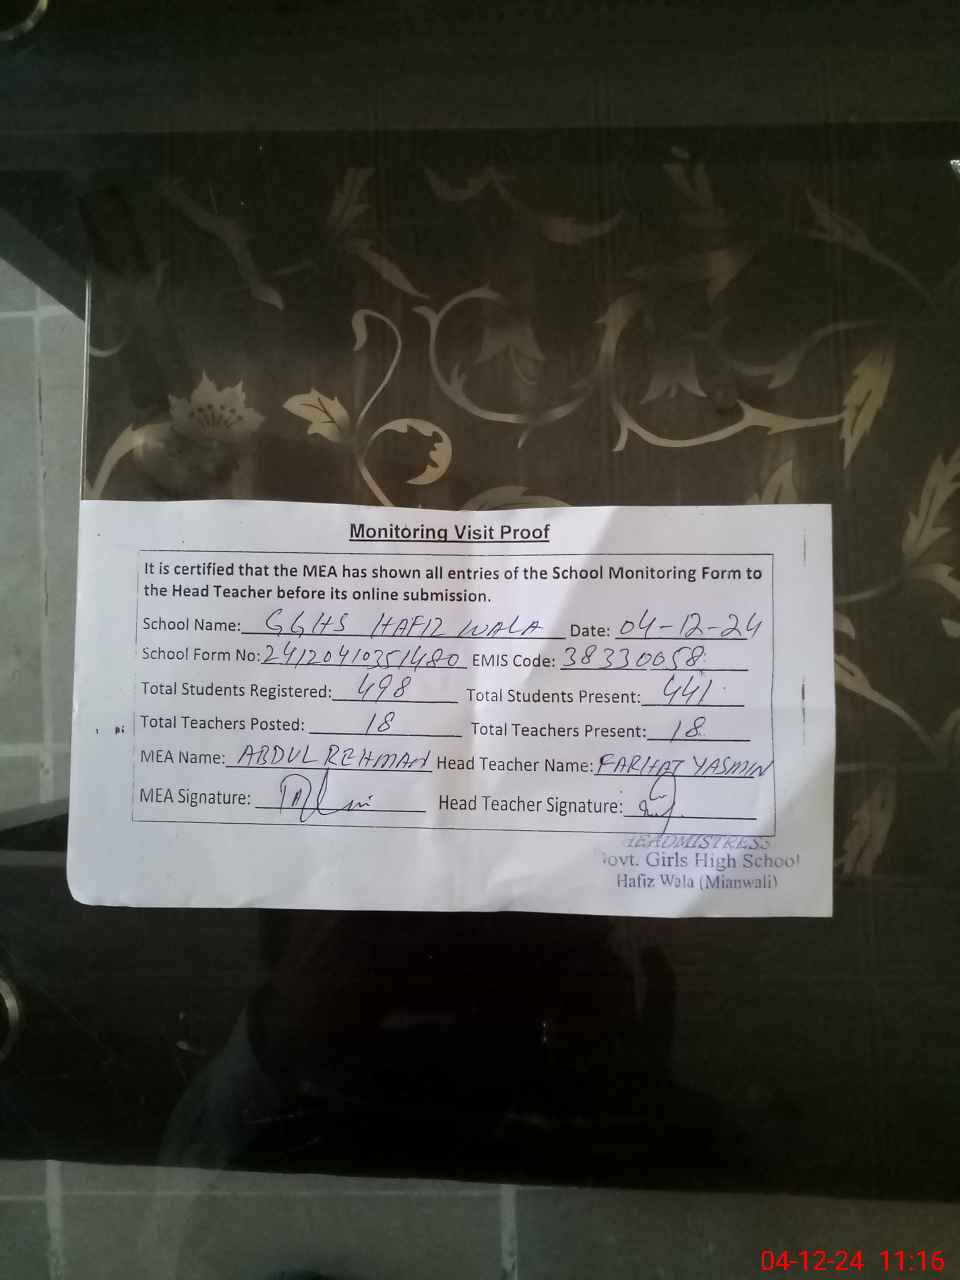 Monitoring Visit Proof
It is certified that the MEA has shown all entries of the School Monitoring Form to
the Head Teacher before its online submission.
School Name: GGHS HAFIZ WALA Date: 04-12-24
School Form No: 24120410351480 EMIS Code: 38330058
Total Students Registered: 498 Total Students Present: 441
Total Teachers Posted: 18 Total Teachers Present: 18
MEA Name: ABDUL REHMAN Head Teacher Name: FARHAT YASMIN
MEA Signature: Head Teacher Signature:
HEADMISTRESS
Govt. Girls High School
Hafiz Wala (Mianwali)
04-12-24 11:16